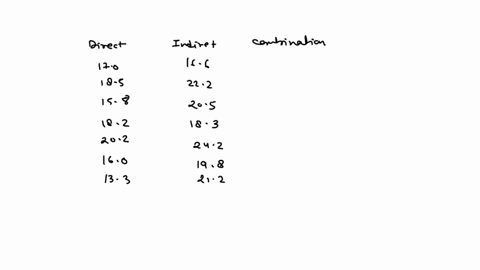 Direct Indiret Combination
17.0 16.6
18.5 22.2
15.8 20.5
18.2 18.3
20.2 24.2
16.0 19.8
13.3 21.2